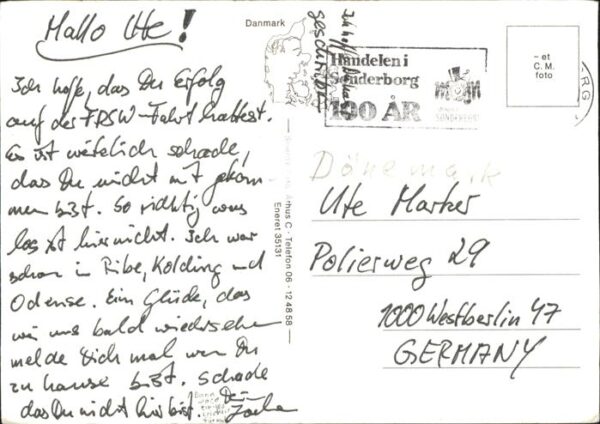 Hallo Ute!
Ich hoffe, das Du Erfolg
auf der FRSW-Fahrt hattest.
Es ist wirklich schade,
das Du nicht mit gekom-
men bist. So richtig was
los ist hier nicht. Ich war
schon in Ribe, Kolding und
Odense. Ein Glück, das
wir uns bald wiedersehen
melde Dich mal wen Du
zu hause bist. Schade
das Du nicht hier bist. Dein
Danmark
geschrieben
Handelen i
Sønderborg
100 ÅR
SØNDERBORG
- et
C. M.
foto
RG
Århus C - Telefon 06 - 12 48 58
Eneret 35131
Dänemark
Ute Marker
Polierweg 29
1000 Westberlin 47
GERMANY